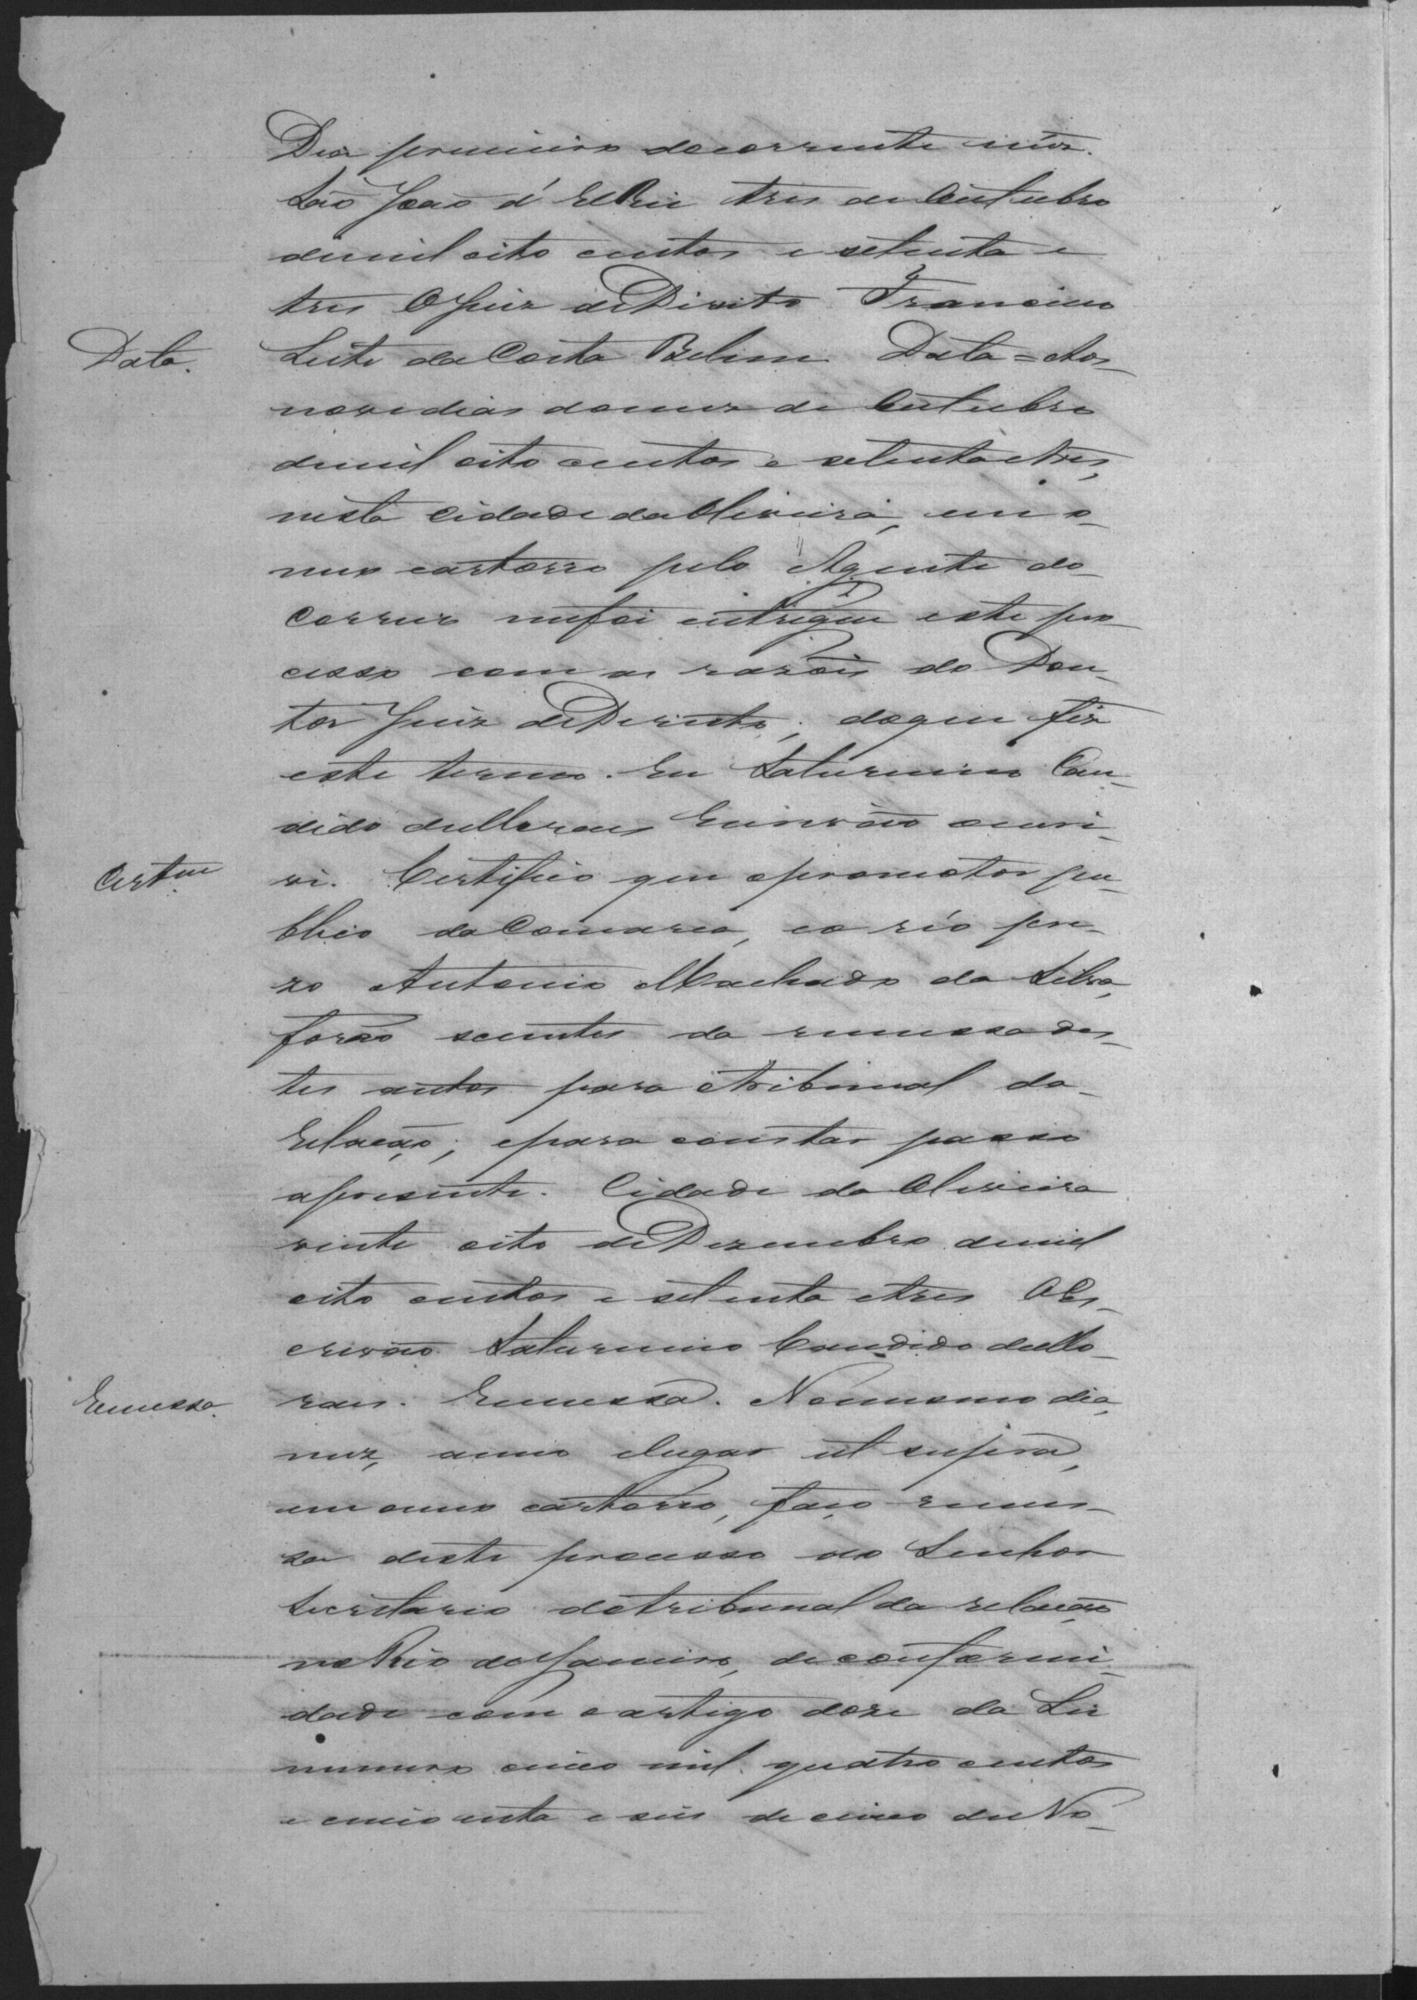 Dia primeiro do corrente mês.
São João d'El Rei tres de Outubro
de mil oito centos e setenta e
tres O Juiz de Direito Francisco
Data.
Leite da Costa Belem. Data = Aos
nove dias do mez de Outubro
de mil oito centos e setenta e tres,
nesta Cidade da Oliveira, em o
meu cartorio pelo Agente do
Correio me foi entregue este pro
cesso com as razões do Dou-
tor Juiz de Direito; do que fiz
este termo. Eu Saturnino Can-
dido de Moraes Escrivão escri-
Certam
vi. Certifico que o promotor pu-
blico da Comarca, e o réo pre-
zo Antonio Machado da Silva,
forão scientes da remessa des-
tes autos para o Tribunal da
Relação; e para constar passo
a presente. Cidade da Oliveira
vinte oito de Dezembro de mil
oito centos e setenta e tres O Es-
crivão Saturnino Candido de Mo-
Remessa.
raes. Remessa. No mesmo dia,
mez, anno e lugar ut supra,
em o meu cartorio, faço remes-
sa deste processo ao Senhor
Secretario do tribunal da relação
no Rio de Janeiro, de conformi-
dade com o artigo doze da Lei
numero cinco mil quatro centos
e cincoenta e seis de cinco de No-